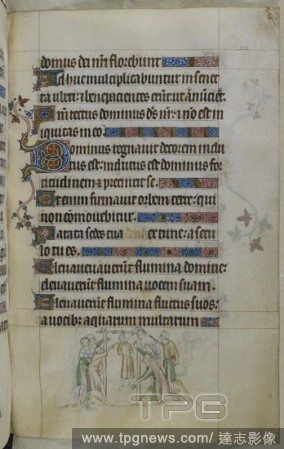 domus dei nri florebunt
Adhuc multiplicabuntur in senec
ta uberi: & bene pacientes erunt ut annuncient.
Qm rectus dominus ds nr: & no est in
iquitas in eo.
Dominus regnavit decorem indu
tus est: indutus est dominus for
titudinem & precinxit se.
Etenim firmavit orbem terre: qui
non commovebitur.
Parata sedes tua deus ex tunc: a secu
lo tu es.
Elevaverunt flumina domine:
elevaverunt flumina vocem suam.
Elevaverunt flumina fluctus suos:
a vocibus aquarum multarum
TPG
www.tpgnews.com/ 達志影像